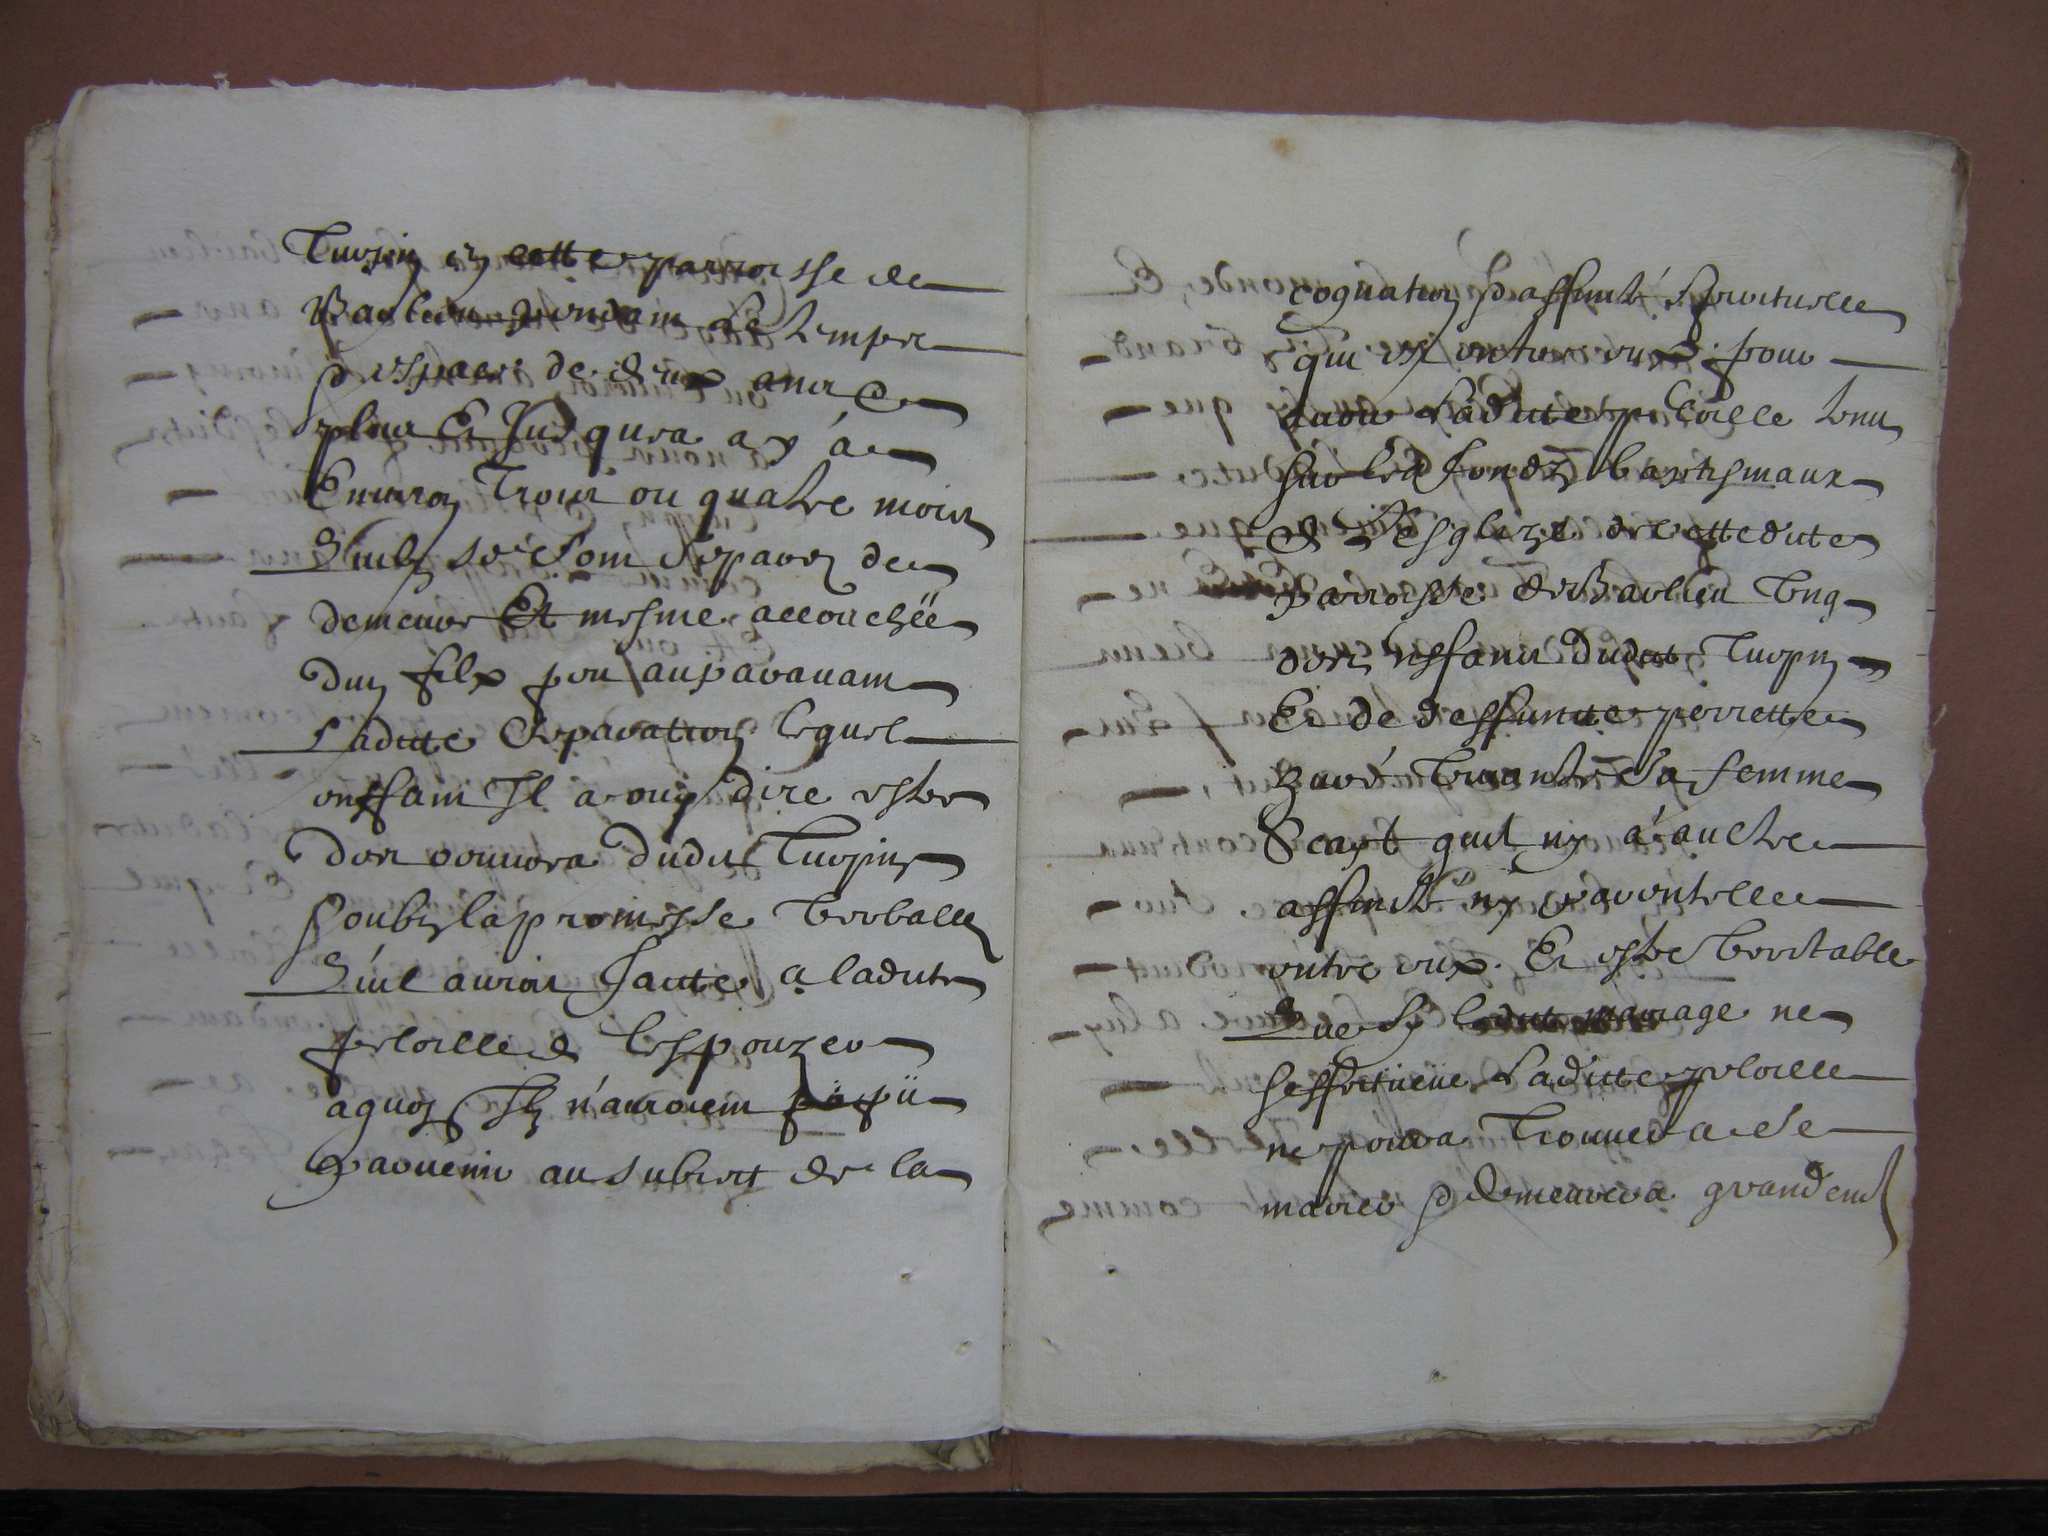 Turpin en cette parroisse de
Baulieu pendant le temps
& espace de deux ans &
plus Et Jusques a ÿ á
Enuiron Trois ou quatre mois
Quils se sont separez de
demeure Et mesme accouchëe
dun filx peu auparauant
Ladite separation lequel
enffant Il a ouy dire estre
des oeuures dudit Turpin
soubz la promesse verballe
Quil auroit faicte a ladite
peloille de lespouzer
a quoy Ilz n'auroient pü
paruenir au subiect de la
cognation & affinité spirituelle
qui est entre eux pour
auoir Ladite peloille tenu
sur les fondz baptismaux
de L'esglize de cette dite
Parroisse de Baulieu Ung
des enffans dudit Turpin
Et de deffuncte perrette
viuante sa femme
Scayt quil ny á autre
affinité ny parentelle
entre eux. Et estre veritable
Que sy ledit mariage ne
seffectueüe Ladite peloille
ne poura trouuer a se
marier & demeurera grandement